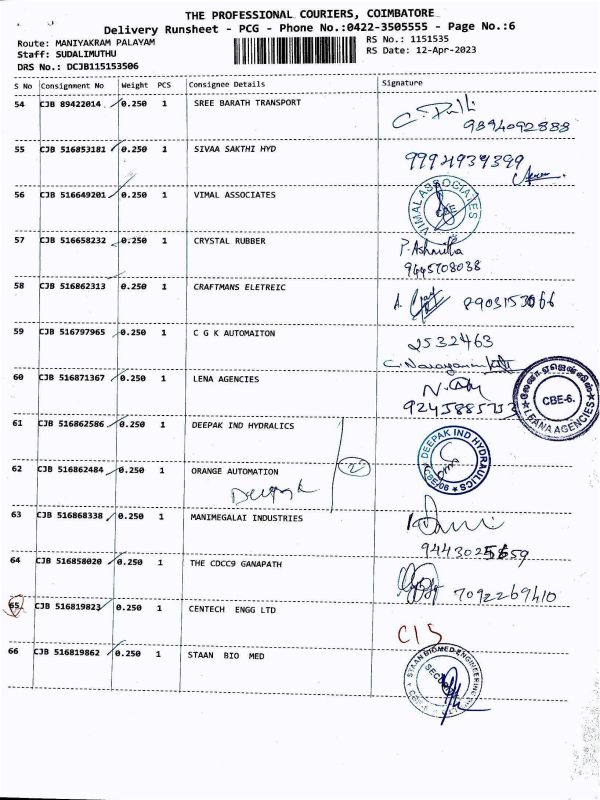 THE PROFESSIONAL COURIERS, COIMBATORE
Delivery Runsheet - PCG - Phone No.:0422-3505555 - Page No.:6
Route: MANIYAKRAM PALAYAM
RS No.: 1151535
Staff: SUDALIMUTHU
RS Date: 12-Apr-2023
DRS No.: DCJB115153506
S No Consignment No Weight PCS Consignee Details Signature
54 CJB 89422014 0.250 1 SREE BARATH TRANSPORT
9894092888
55 CJB 516853181 0.250 1 SIVAA SAKTHI HYD
56 CJB 516649201 0.250 1 VIMAL ASSOCIATES
VIMAL ASSOCIATES CBE
57 CJB 516658232 0.250 1 CRYSTAL RUBBER
9445708038
58 CJB 516862313 0.250 1 CRAFTMANS ELETREIC
59 CJB 516797965 0.250 1 C G K AUTOMAITON
2532463
60 CJB 516871367 0.250 1 LENA AGENCIES
லேனா ஏஜென்சிஸ் CBE-6. LEANA AGENCIES
61 CJB 516862586 0.250 1 DEEPAK IND HYDRALICS
DEEPAK IND HYDRAULICS CBE/06
62 CJB 516862484 0.250 1 ORANGE AUTOMATION
Deepak
63 CJB 516868338 0.250 1 MANIMEGALAI INDUSTRIES
64 CJB 516858020 0.250 1 THE CDCC9 GANAPATH
7092269410
65 CJB 516819823 0.250 1 CENTECH ENGG LTD
C/S
66 CJB 516819862 0.250 1 STAAN BIO MED
STAAN BIOMED ENGINEERING SECURITY